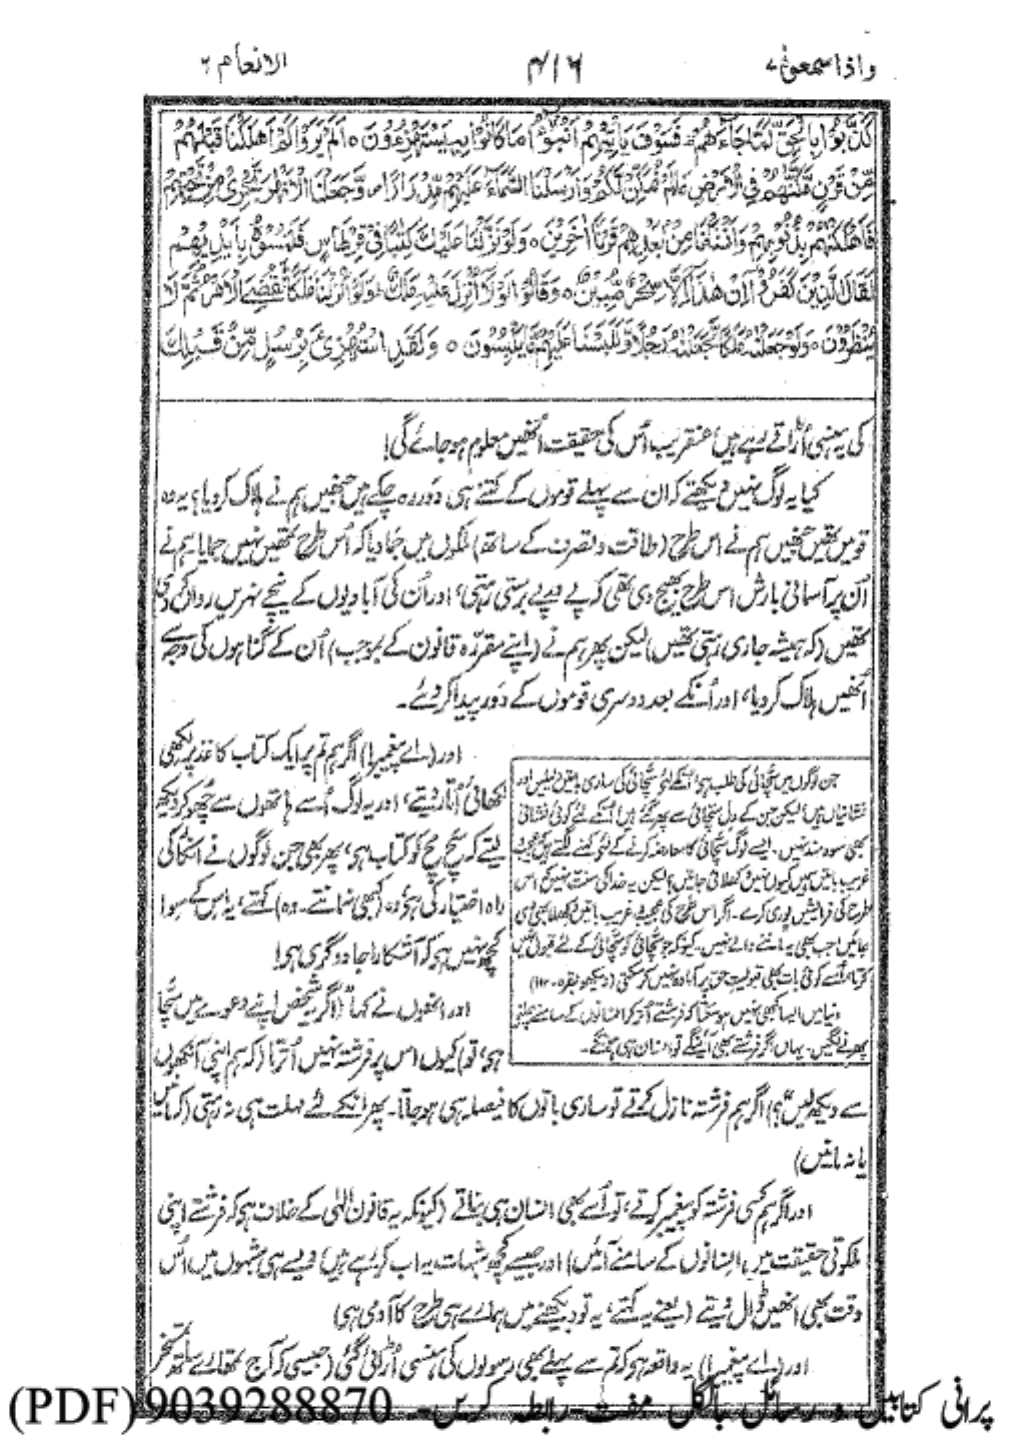 واذا سمعوا ۷
۴۱۶
الانعام ۶
كَذَّبُوْا بِالْحَقِّ لَمَّا جَآءَهُمْ فَسَوْفَ يَاْتِيْهِمْ اَنْۢبٰٓؤُا مَا كَانُوْا بِهٖ يَسْتَهْزِءُوْنَ ۝ اَلَمْ يَرَوْا كَمْ اَهْلَكْنَا مِنْ قَبْلِهِمْ
مِّنْ قَرْنٍ مَّكَّنّٰهُمْ فِى الْاَرْضِ مَا لَمْ نُمَكِّنْ لَّكُمْ وَاَرْسَلْنَا السَّمَآءَ عَلَيْهِمْ مِّدْرَارًا وَّجَعَلْنَا الْاَنْهٰرَ تَجْرِىْ مِنْ تَحْتِهِمْ
فَاَهْلَكْنٰهُمْ بِذُنُوْبِهِمْ وَاَنْشَاْنَا مِنْۢ بَعْدِهِمْ قَرْنًا اٰخَرِيْنَ ۝ وَلَوْ نَزَّلْنَا عَلَيْكَ كِتٰبًا فِىْ قِرْطَاسٍ فَلَمَسُوْهُ بِاَيْدِيْهِمْ
لَقَالَ الَّذِيْنَ كَفَرُوْٓا اِنْ هٰذَآ اِلَّا سِحْرٌ مُّبِيْنٌ ۝ وَقَالُوْا لَوْلَآ اُنْزِلَ عَلَيْهِ مَلَكٌ وَلَوْ اَنْزَلْنَا مَلَكًا لَّقُضِىَ الْاَمْرُ ثُمَّ لَا
يُنْظَرُوْنَ ۝ وَلَوْ جَعَلْنٰهُ مَلَكًا لَّجَعَلْنٰهُ رَجُلًا وَّلَلَبَسْنَا عَلَيْهِمْ مَّا يَلْبِسُوْنَ ۝ وَلَقَدِ اسْتُهْزِئَ بِرُسُلٍ مِّنْ قَبْلِكَ
کی یہ ہنسی اُڑاتے رہے ہیں، عنقریب اُس کی حقیقت اُنھیں معلوم ہوجائے گی!
کیا یہ لوگ نہیں دیکھتے کہ ان سے پہلے قوموں کے کتنے ہی دَور رہ چکے ہیں جنھیں ہم نے ہلاک کردیا؟ یہ وہ
قومیں تھیں جنھیں ہم نے اس طرح (طاقت و تصرف کے ساتھ) ملکوں میں جما دیا کہ اُس طرح تمھیں نہیں جمایا ہم نے
اُن پر آسمانی بارش اس طرح بھیج دی تھی کہ پے درپے برستی رہتی، اور اُن کی آبادیوں کے نیچے نہریں رواں کردی
تھیں (کہ ہمیشہ جاری رہتی تھیں) لیکن پھر ہم نے (اپنے مقررّہ قانون کے بموجب) اُن کے گناہوں کی وجہ سے
اُنھیں ہلاک کردیا، اور اُنکے بعد دوسری قوموں کے دَور پیدا کردئے۔
اور (اے پیغمبر!) اگر ہم تم پر ایک کتاب کاغذ پر لکھی
لکھائی اُتار دیتے، اور یہ لوگ اُسے ہاتھوں سے چھو کر دیکھ
لیتے کہ سچ مچ کو کتاب ہی، پھر بھی جن لوگوں نے انکار کی
راہ اختیار کی ہی، وہ (کبھی نہ مانتے۔ وہ) کہتے، یہ اس کے سوا
کچھ نہیں ہی کہ آشکارا جادوگری ہی!
اور انھوں نے کہا "(اگر یہ شخص اپنے دعوے میں سچّا
ہی، تو) کیوں اس پر فرشتہ نہیں اُترتا (کہ ہم اپنی آنکھوں
جن لوگوں میں سچّائی کی طلب ہی، اُنکے لئے سچّائی کی ساری باتیں دلیلیں اور
نشانیاں ہیں، لیکن جن کے دل سچّائی سے پھر گئے ہیں اُنکے لئے کوئی نشانی
بھی سودمند نہیں۔ ایسے لوگ سچّائی کا معارضہ کرنے کے لئے کہنے لگتے ہیں عجیب و
غریب باتیں ہمیں کیوں نہیں دکھلائی جاتیں؟ لیکن یہ خدا کی سنت نہیں کہ اس
طرح کی فرمائشیں پوری کرے۔ اگر اس طرح کی عجیب و غریب باتیں دکھلا بھی دی
جائیں جب بھی یہ ماننے والے نہیں۔ کیونکہ جو سچّائی کو سچّائی کے لئے قبول نہیں
کرتا، اُسے کوئی بات بھی قبولیتِ حق پر آمادہ نہیں کرسکتی (دیکھو بقرہ۔۱۱۲)
دنیا میں ایسا کبھی نہیں ہوسکتا کہ فرشتے اُتر کر انسانوں کے سامنے چلنے
پھرنے لگیں۔ یہاں اگر فرشتے بھی آئینگے تو انسان ہی ہونگے۔
سے دیکھ لیں"؟) اگر ہم فرشتہ نازل کرتے تو ساری باتوں کا فیصلہ ہی ہوجاتا۔ پھر انکے لئے مہلت ہی نہ رہتی (کہ مانیں
یا نہ مانیں)
اور اگر ہم کسی فرشتہ کو پیغمبر کرتے، تو اُسے بھی انسان ہی بناتے (کیونکہ یہ قانونِ الٰہی کے خلاف ہی کہ فرشتے اپنی
ملکوتی حقیقت میں انسانوں کے سامنے آئیں) اور جیسے کچھ شبہات یہ اب کر رہے ہیں، ویسے ہی شبہوں میں اُس
وقت بھی انھیں ڈال دیتے (یعنے یہ کہتے، یہ تو دیکھنے میں ہمارے ہی طرح کا آدمی ہی)
اور (اے پیغمبر!) یہ واقعہ ہی کہ تم سے پہلے بھی رسولوں کی ہنسی اُڑائی گئی (جیسی کہ آج تمھارے ساتھ تمسخر
پرانی کتابیں و رسائل بالکل مفت رابطہ کریں۔ 9039288870 (PDF)